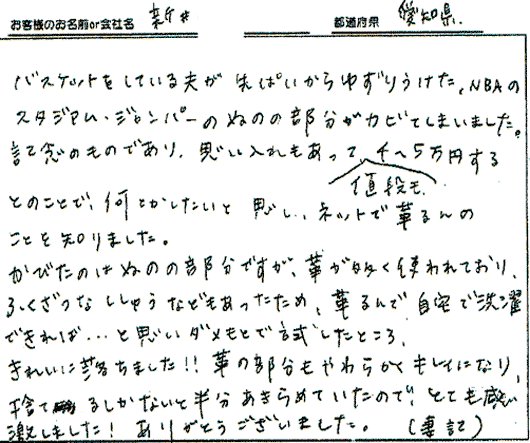 お客様のお名前or会社名 新井 都道府県 愛知県.
バスケットをしている夫が先ぱいからゆずりうけた、NBAの
スタジアム・ジャンパーのぬのの部分がカビてしまいました。
記念のものであり、思い入れもあって、4〜5万円する
値段も、
とのことで、何とかしたいと思い、ネットで革るんの
ことを知りました。
かびたのはぬのの部分ですが、革が多く使われており、
ふくざつなししゅうなどもあったため、革るんで自宅で洗濯
できれば…と思いダメもとで試したところ、
きれいに落ちました!! 革の部分もやわらかくキレイになり、
捨てるしかないと半分あきらめていたので、とても感
激しました! ありがとうございました。